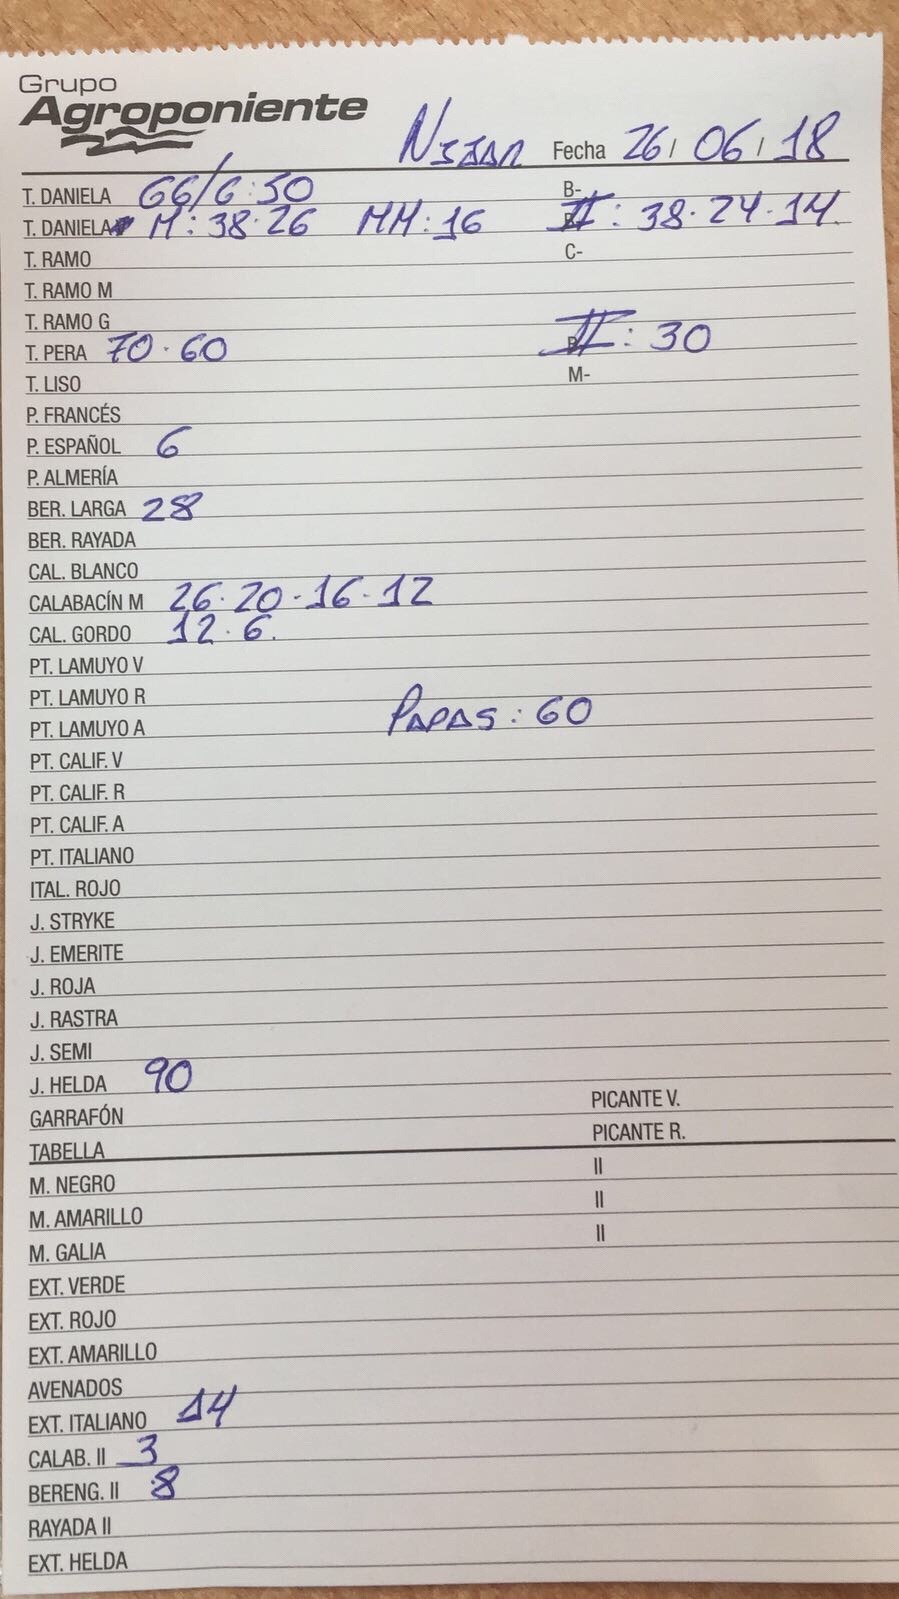 Grupo
Agroponiente
NIJAR Fecha 26/ 06/ 18
T. DANIELA 66/6:50 B-
T. DANIELA M: 38·26 MM: 16 II: 38·24·14.
T. RAMO C-
T. RAMO M
T. RAMO G
T. PERA 70·60 II: 30
T. LISO M-
P. FRANCÉS
P. ESPAÑOL 6
P. ALMERÍA
BER. LARGA 28
BER. RAYADA
CAL. BLANCO
CALABACÍN M 26·20·16·12
CAL. GORDO 12·6.
PT. LAMUYO V
PT. LAMUYO R
PT. LAMUYO A PAPAS: 60
PT. CALIF. V
PT. CALIF. R
PT. CALIF. A
PT. ITALIANO
ITAL. ROJO
J. STRYKE
J. EMERITE
J. ROJA
J. RASTRA
J. SEMI
J. HELDA 90
GARRAFÓN PICANTE V.
TABELLA PICANTE R.
M. NEGRO II
M. AMARILLO II
M. GALIA II
EXT. VERDE
EXT. ROJO
EXT. AMARILLO
AVENADOS
EXT. ITALIANO 14
CALAB. II 3
BERENG. II 8
RAYADA II
EXT. HELDA